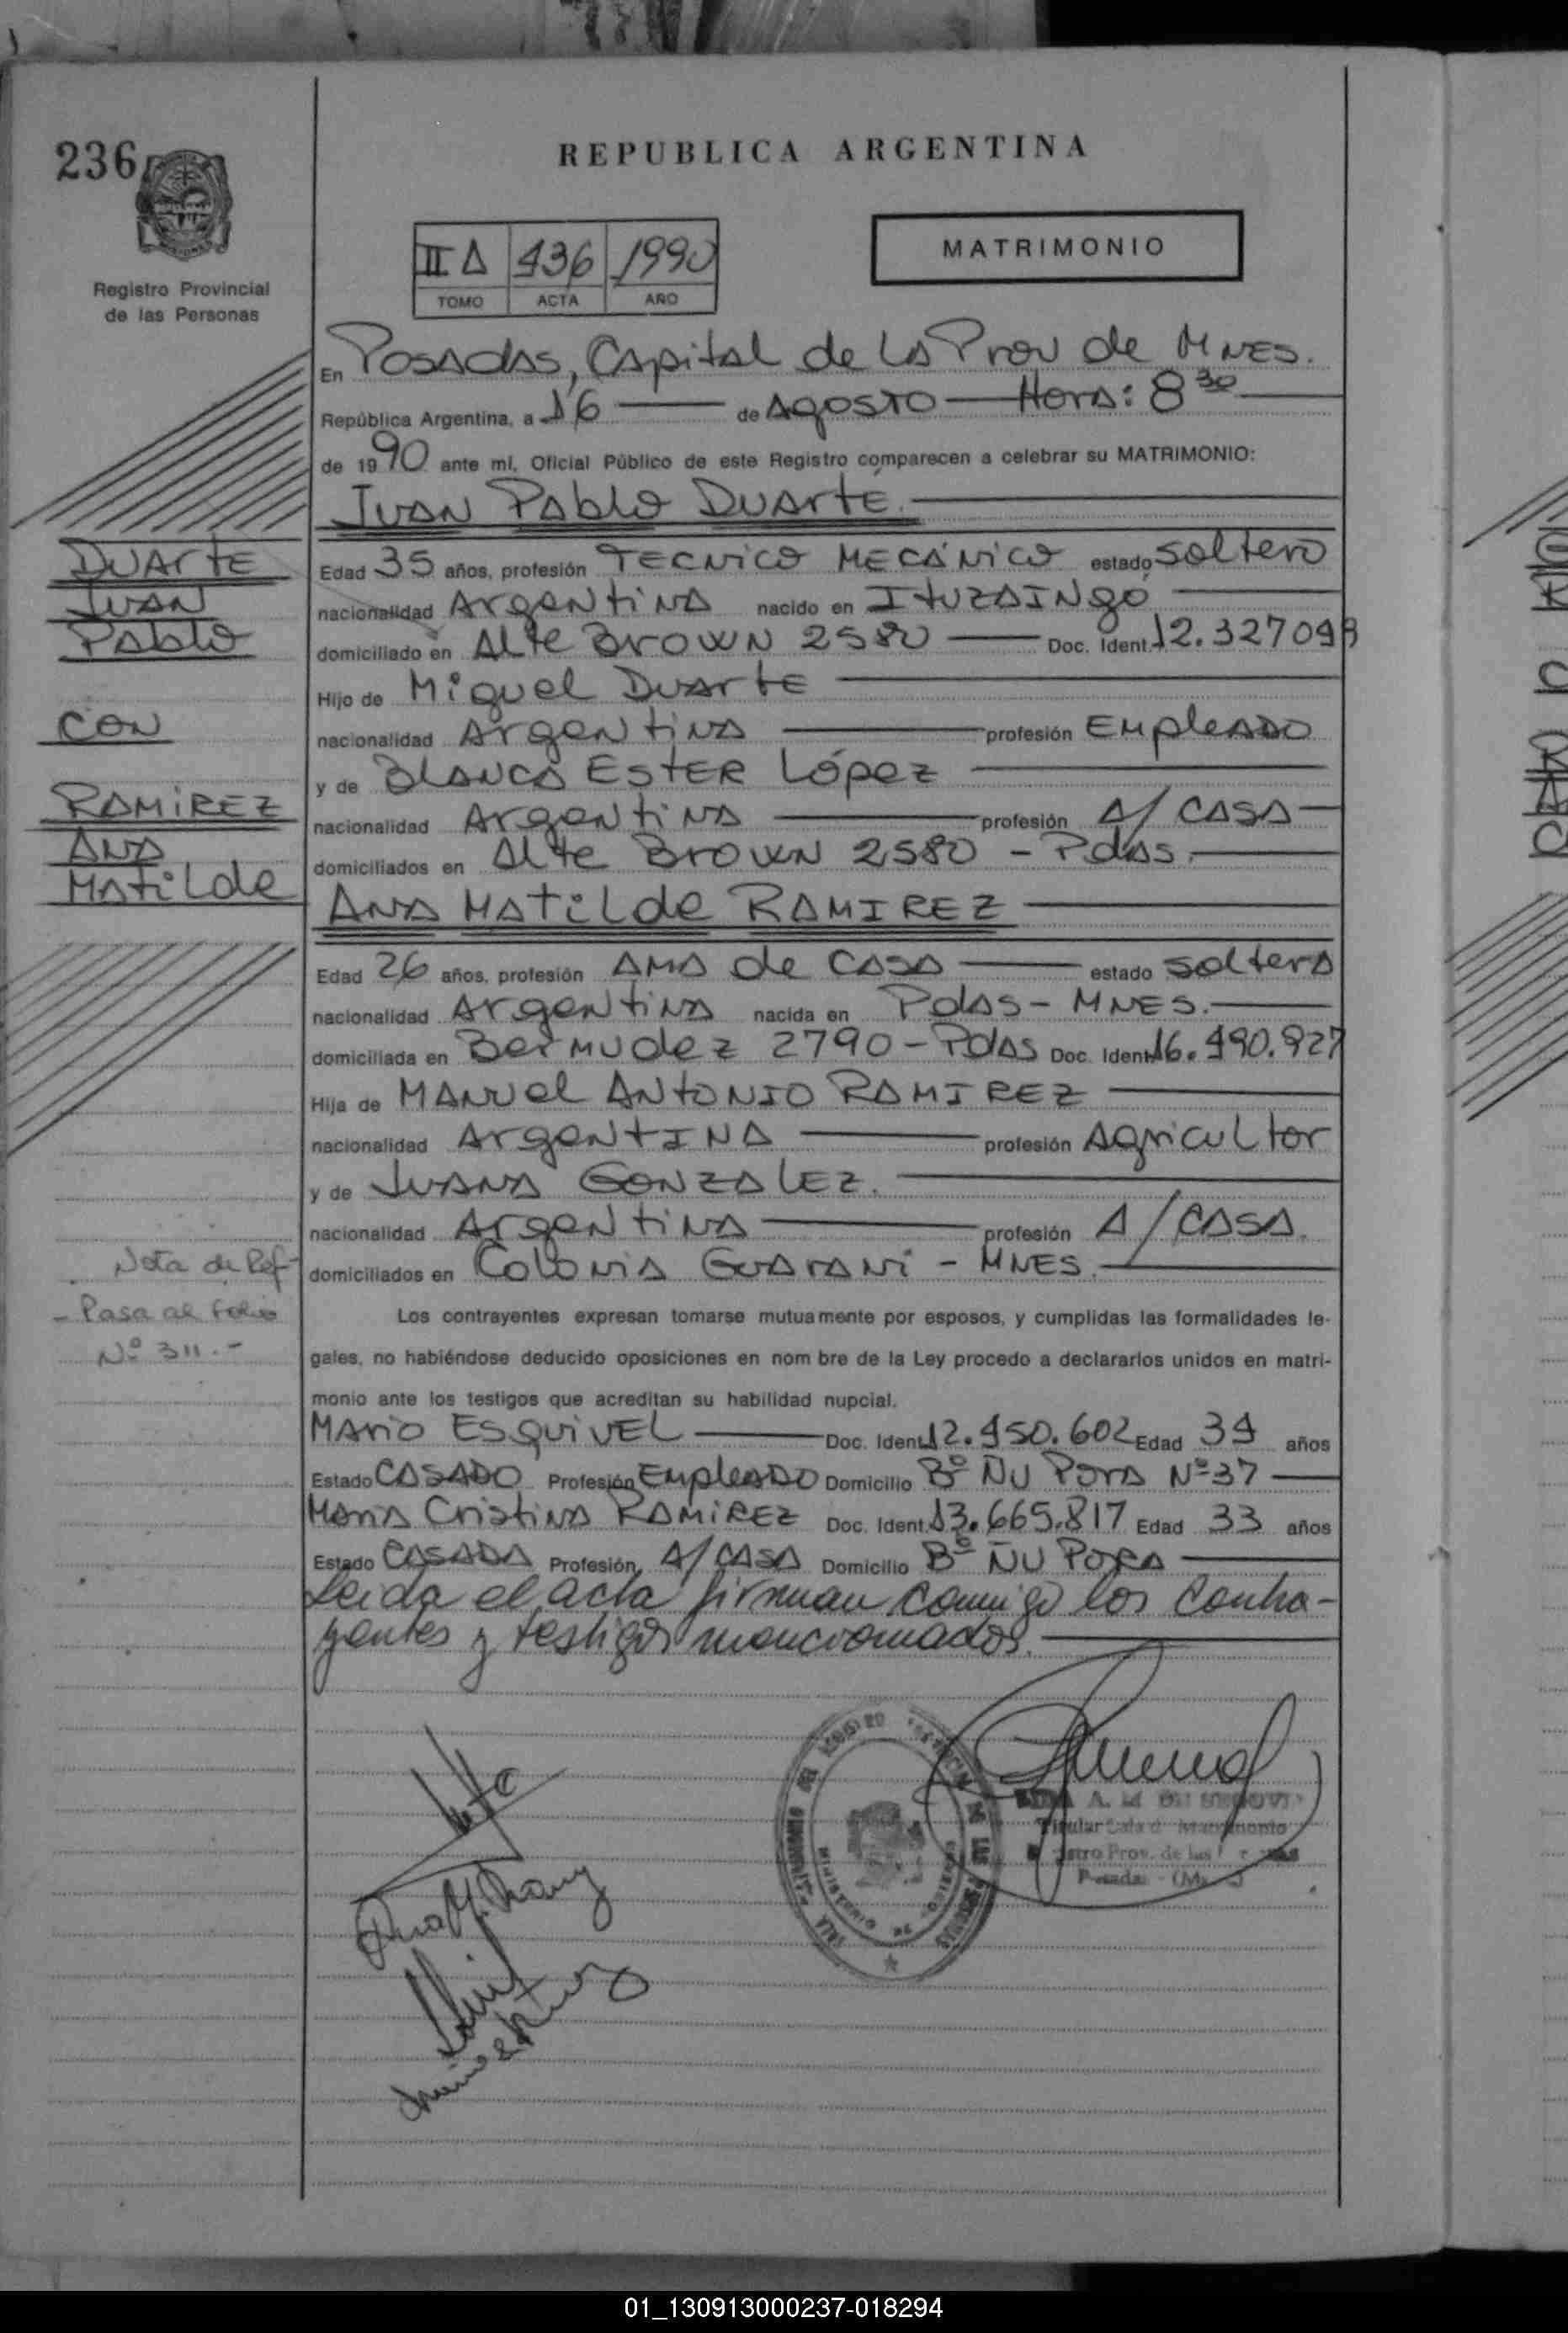 236
REPUBLICA ARGENTINA
Registro Provincial
de las Personas
II A 436 1990
TOMO ACTA AÑO
MATRIMONIO
En Posadas, Capital de la Prov de Mnes.
República Argentina, a 16 de Agosto Hora: 8 30
de 1990 ante mí, Oficial Público de este Registro comparecen a celebrar su MATRIMONIO:
Juan Pablo Duarte
Edad 35 años, profesión Tecnico Mecánico estado Soltero
nacionalidad Argentina nacido en Ituzaingó
domiciliado en Alte Brown 2580 Doc. Ident. 12.327098
Hijo de Miguel Duarte
nacionalidad Argentina profesión Empleado
y de Blanca Ester López
nacionalidad Argentina profesión A/ Casa
domiciliados en Alte Brown 2580 - Pdas.
Ana Matilde Ramirez
Edad 26 años, profesión Ama de Casa estado Soltera
nacionalidad Argentina nacida en Pdas - Mnes.
domiciliada en Bermudez 2790 - Pdas Doc. Ident. 16.490.827
Hija de Manuel Antonio Ramirez
nacionalidad Argentina profesión Agricultor
y de Juana Gonzalez.
nacionalidad Argentina profesión A/ Casa.
domiciliados en Colonia Guarani - Mnes.
Los contrayentes expresan tomarse mutuamente por esposos, y cumplidas las formalidades le-
gales, no habiéndose deducido oposiciones en nom bre de la Ley procedo a declararlos unidos en matri-
monio ante los testigos que acreditan su habilidad nupcial.
Mario Esquivel Doc. Ident. 12.450.602 Edad 34 años
Estado Casado Profesión Empleado Domicilio Bº Ñu Pora Nº 37
Maria Cristina Ramirez Doc. Ident. 13.665.817 Edad 33 años
Estado Casada Profesión A/ Casa Domicilio Bº Ñu Pora
Leida el acta firman conmigo los contra-
yentes y testigos mencionados.
Duarte
Juan
Pablo
con
Ramirez
Ana
Matilde
Nota de Ref
- Pasa al folio
Nº 311.-
A. M. DE
Titular Sala d Matrimonio
Prov. de las
Posadas - (Mnes)
01_130913000237-018294